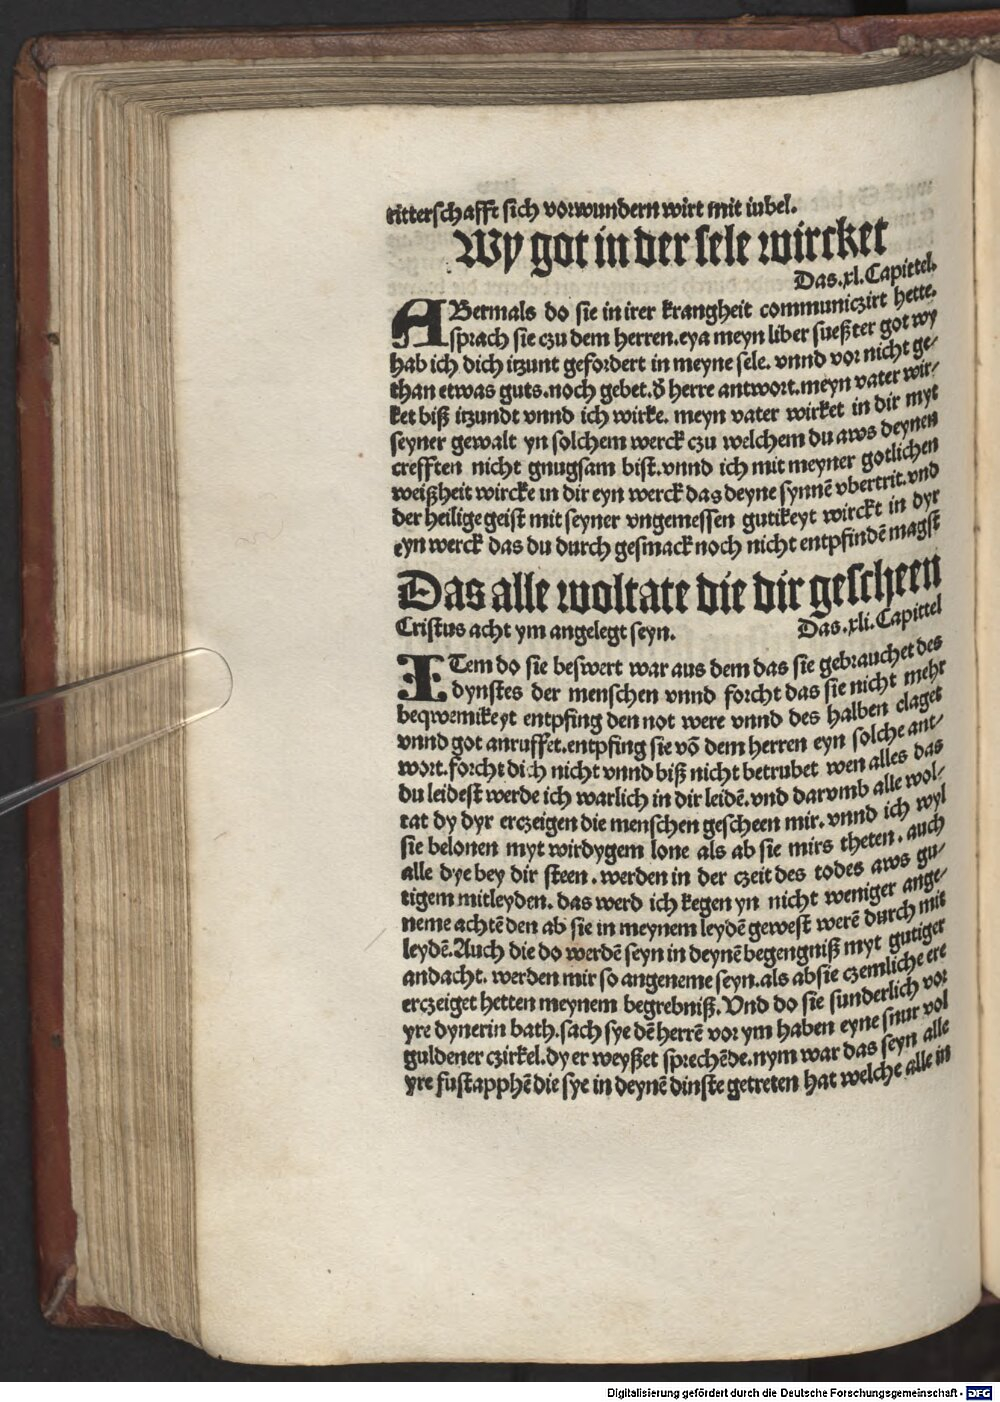 ritterschafft sich vorwundern wirt mit iubel.
Wy got in der sele wircket
Das .xl. Capittel.
ABermals do sie in irer krangheit communiczirt hette.
sprach sie czu dem herren. eya meyn liber sueßter got wy
hab ich dich itzunt gefordert in meyne sele. vnnd vor nicht ge⸗
than etwas guts. noch gebet. d̕ herre antwort. meyn vater wir⸗
ket biß itzundt vnnd ich wirke. meyn vater wirket in dir myt
seyner gewalt yn solchem werck czu welchem du aws deynen
crefften nicht gnugsam bist. vnnd ich mit meyner gotlichen
weißheit wircke in dir eyn werck das deyne synnē vbertrit. vnd
der heilige geist mit seyner vngemessen gutikeyt wirckt in dyr
eyn werck das du durch gesmack noch nicht entpfindē magst
Das alle woltate die dir gescheen
Cristus acht ym angelegt seyn.
Das .xli. Capittel
ITem do sie beswert war aus dem das sie gebrauchet des
dynstes der menschen vnnd forcht das sie nicht mehr
beqwemikeyt entpfing den not were vnnd des halben claget
vnnd got anruffet. entpfing sie vō dem herren eyn solche ant⸗
wort. forcht dich nicht vnnd biß nicht betrubet wen alles das
du leidest werde ich warlich in dir leidē. vnd darvmb alle wol⸗
tat dy dyr erczeigen die menschen gescheen mir. vnnd ich wyl
sie belonen myt wirdygem lone als ab sie mirs theten. auch
alle dye bey dir steen. werden in der czeit des todes aws gu⸗
tigem mitleyden. das werd ich kegen yn nicht weniger ange⸗
neme achtē den ab sie in meynem leydē gewest werē durch mit
leydē. Auch die do werdē seyn in deynē begengniß myt gutiger
andacht. werden mir so angeneme seyn. als ab sie czemliche ere
erczeiget hetten meynem begrebniß. Vnd do sie sunderlich vor
yre dynerin bath. sach sye dē herrē vor ym haben eyne snur vol
guldener czirkel. dy er weyßet sprechēde. nym war das seyn alle
yre fustapphē die sye in deynē dinste getreten hat welche alle in
Digitalisierung gefördert durch die Deutsche Forschungsgemeinschaft - DFG